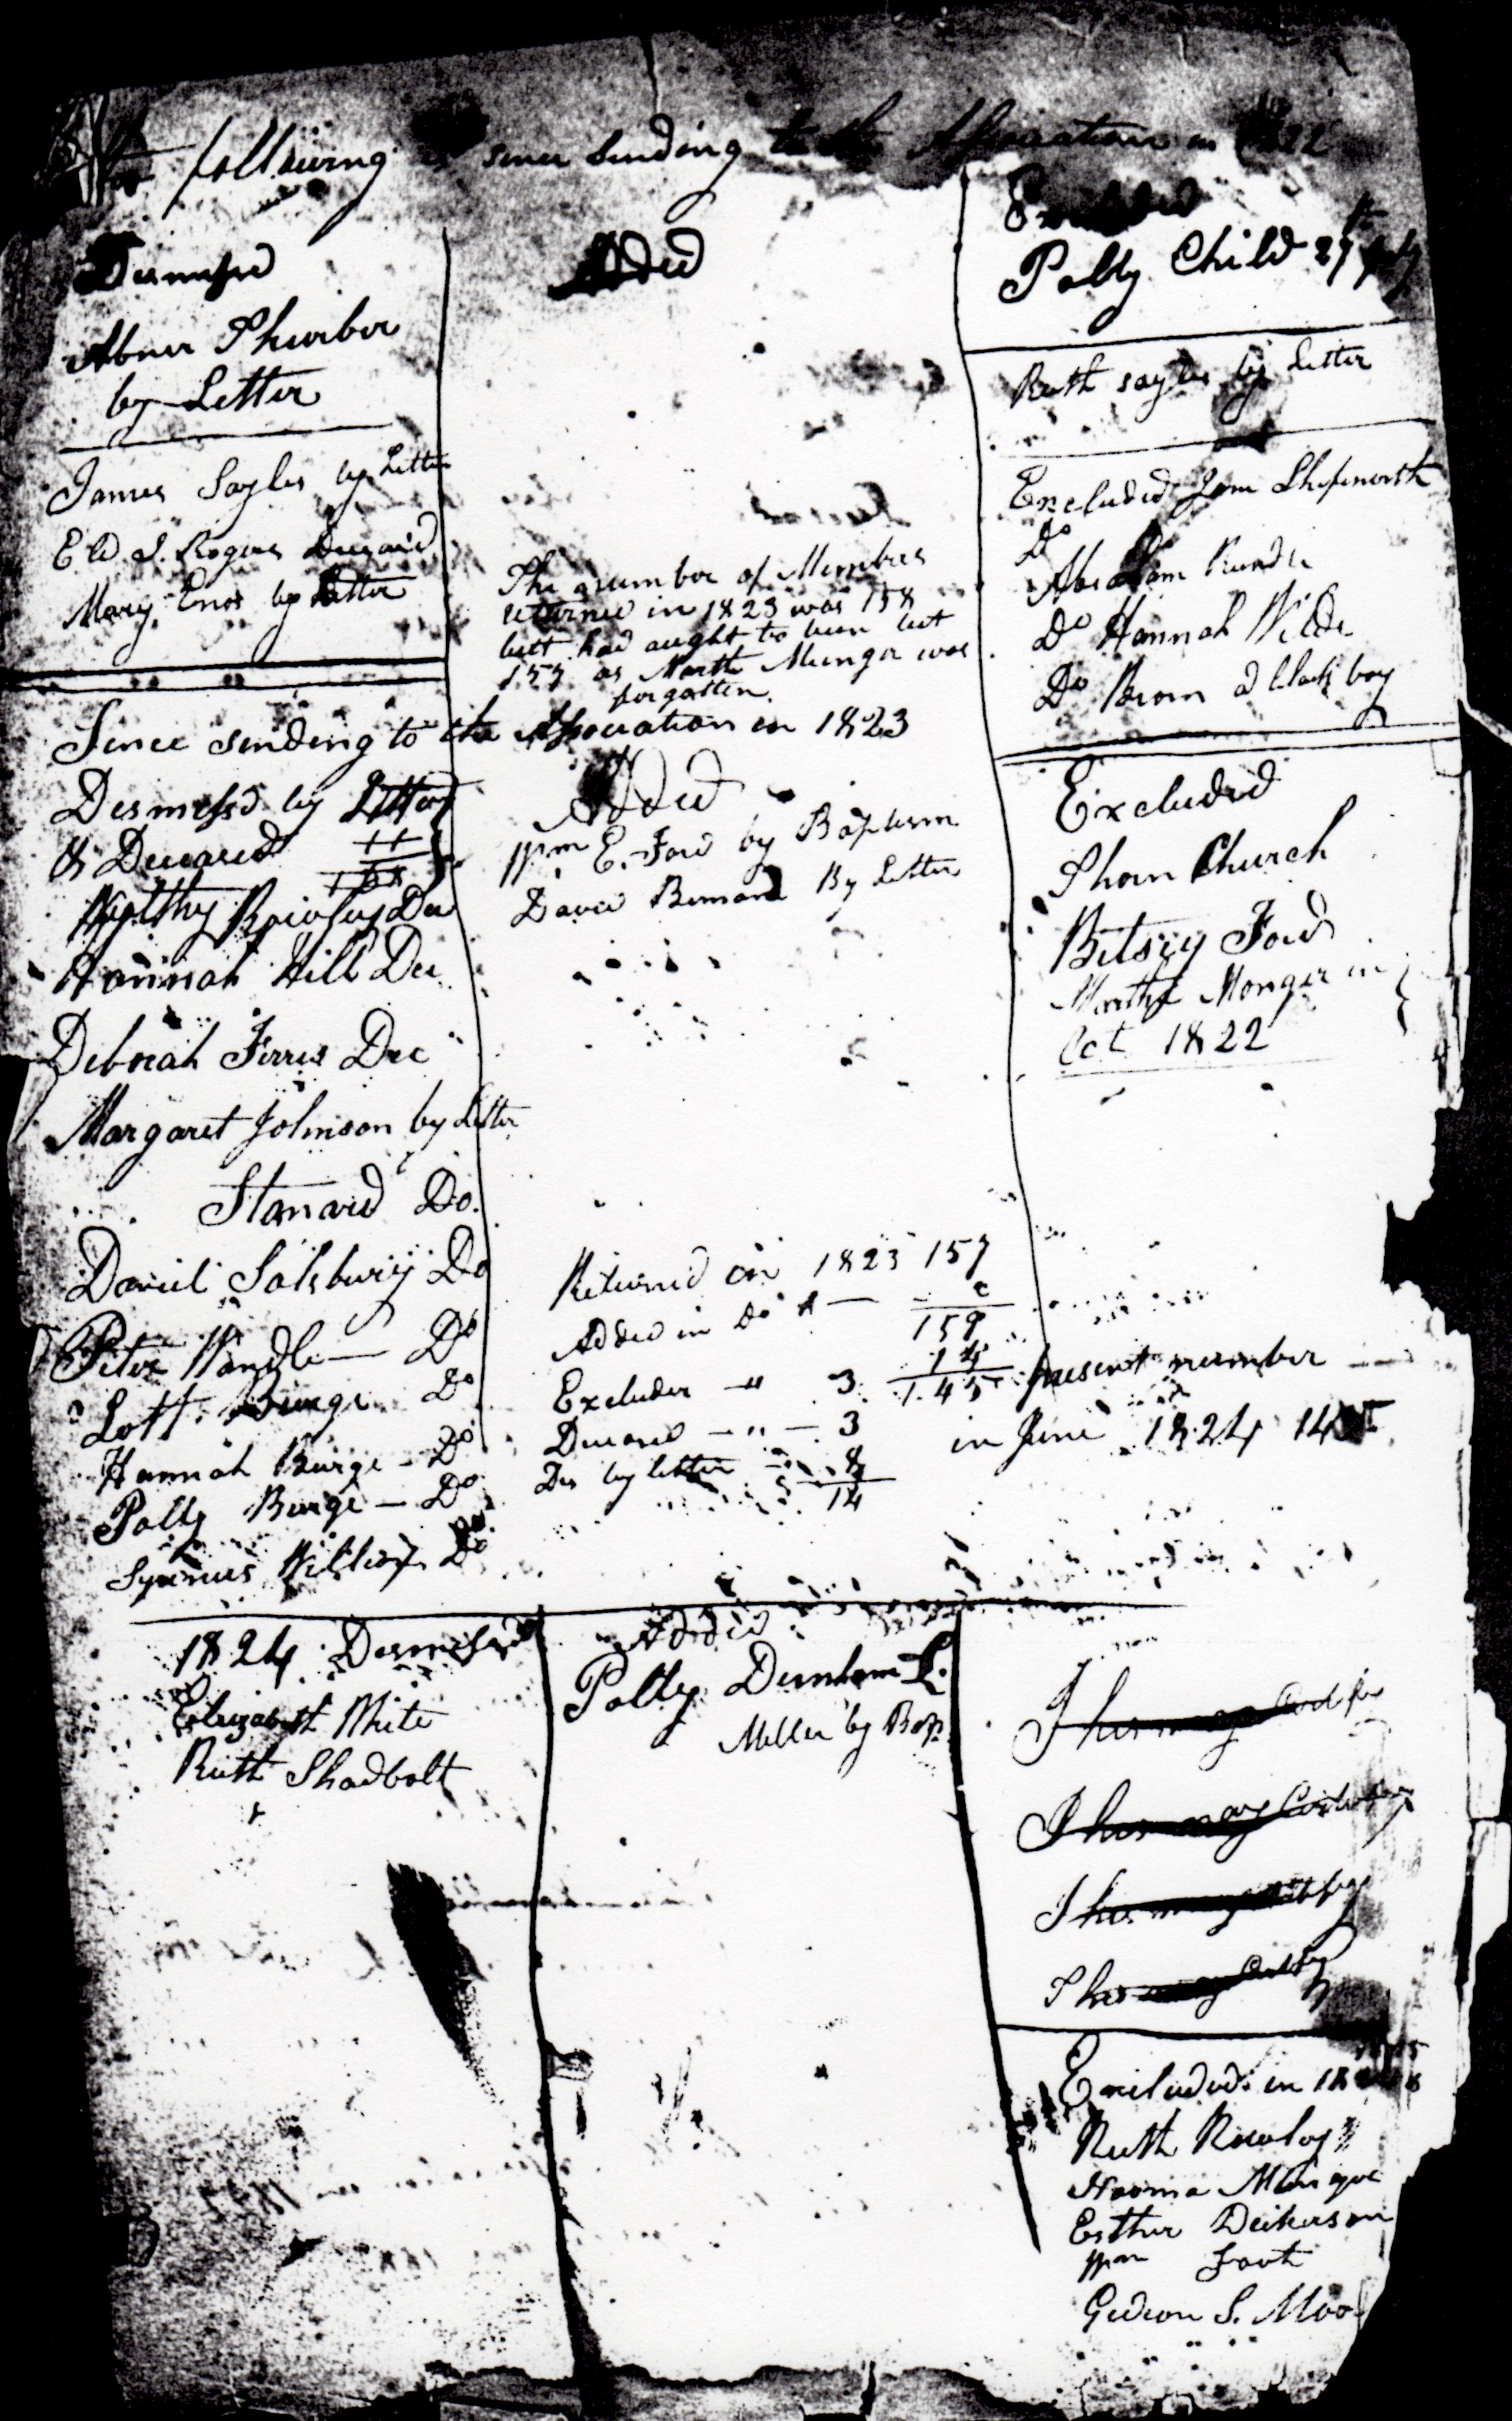 following since sending to the Association in 1822
Desmissd
Abner Thurber
by Letter
James Sayles by Letter
Eld S. Rogers Deceasd
Mary Enos by Letter
Added
The number of Members
returned in 1823 was 158
but had aught to been but
157 as Marth Munger was
forgotten.
Excluded
Polly Child 27
Ruth sayles by Letter
Excluded Jem Shipenorth
Do
Abraham Rundle
Do Hannah Wilde
Do Brom a black boy
Since sending to the Association in 1823
Desmissd by Letter
& Deceased 11
Rowley Dec
Hannah Hill Dec
Deborah Ferris Dec
Margaret Johnson by Letter
Stanard Do.
Daniel Salsbury Do
Peter Wandle — Do
Lott Burge Do
Hannah Burge — Do
Polly Burge — Do
Do
Added
Wm E. Ford by Baptism
David Bernard By Letter
Returned in 1823 157
Added in Do — 2
159
14
Excluded — " 3 145 present number —
Deceased — " — 3 in June 1824 145
Des by letter — 8
14
Excluded
Thom Church
Betsey Ford
Marthy Monger in
Oct 1822
1824 Desmissd
Elizabeth White
Ruth Shadbolt
Added
Polly Dunham L.
Miller by Bap.
Excluded in
Ruth Rowley
Naoma
Esther Dickerson
Wm Foot
Gideon S. Moo